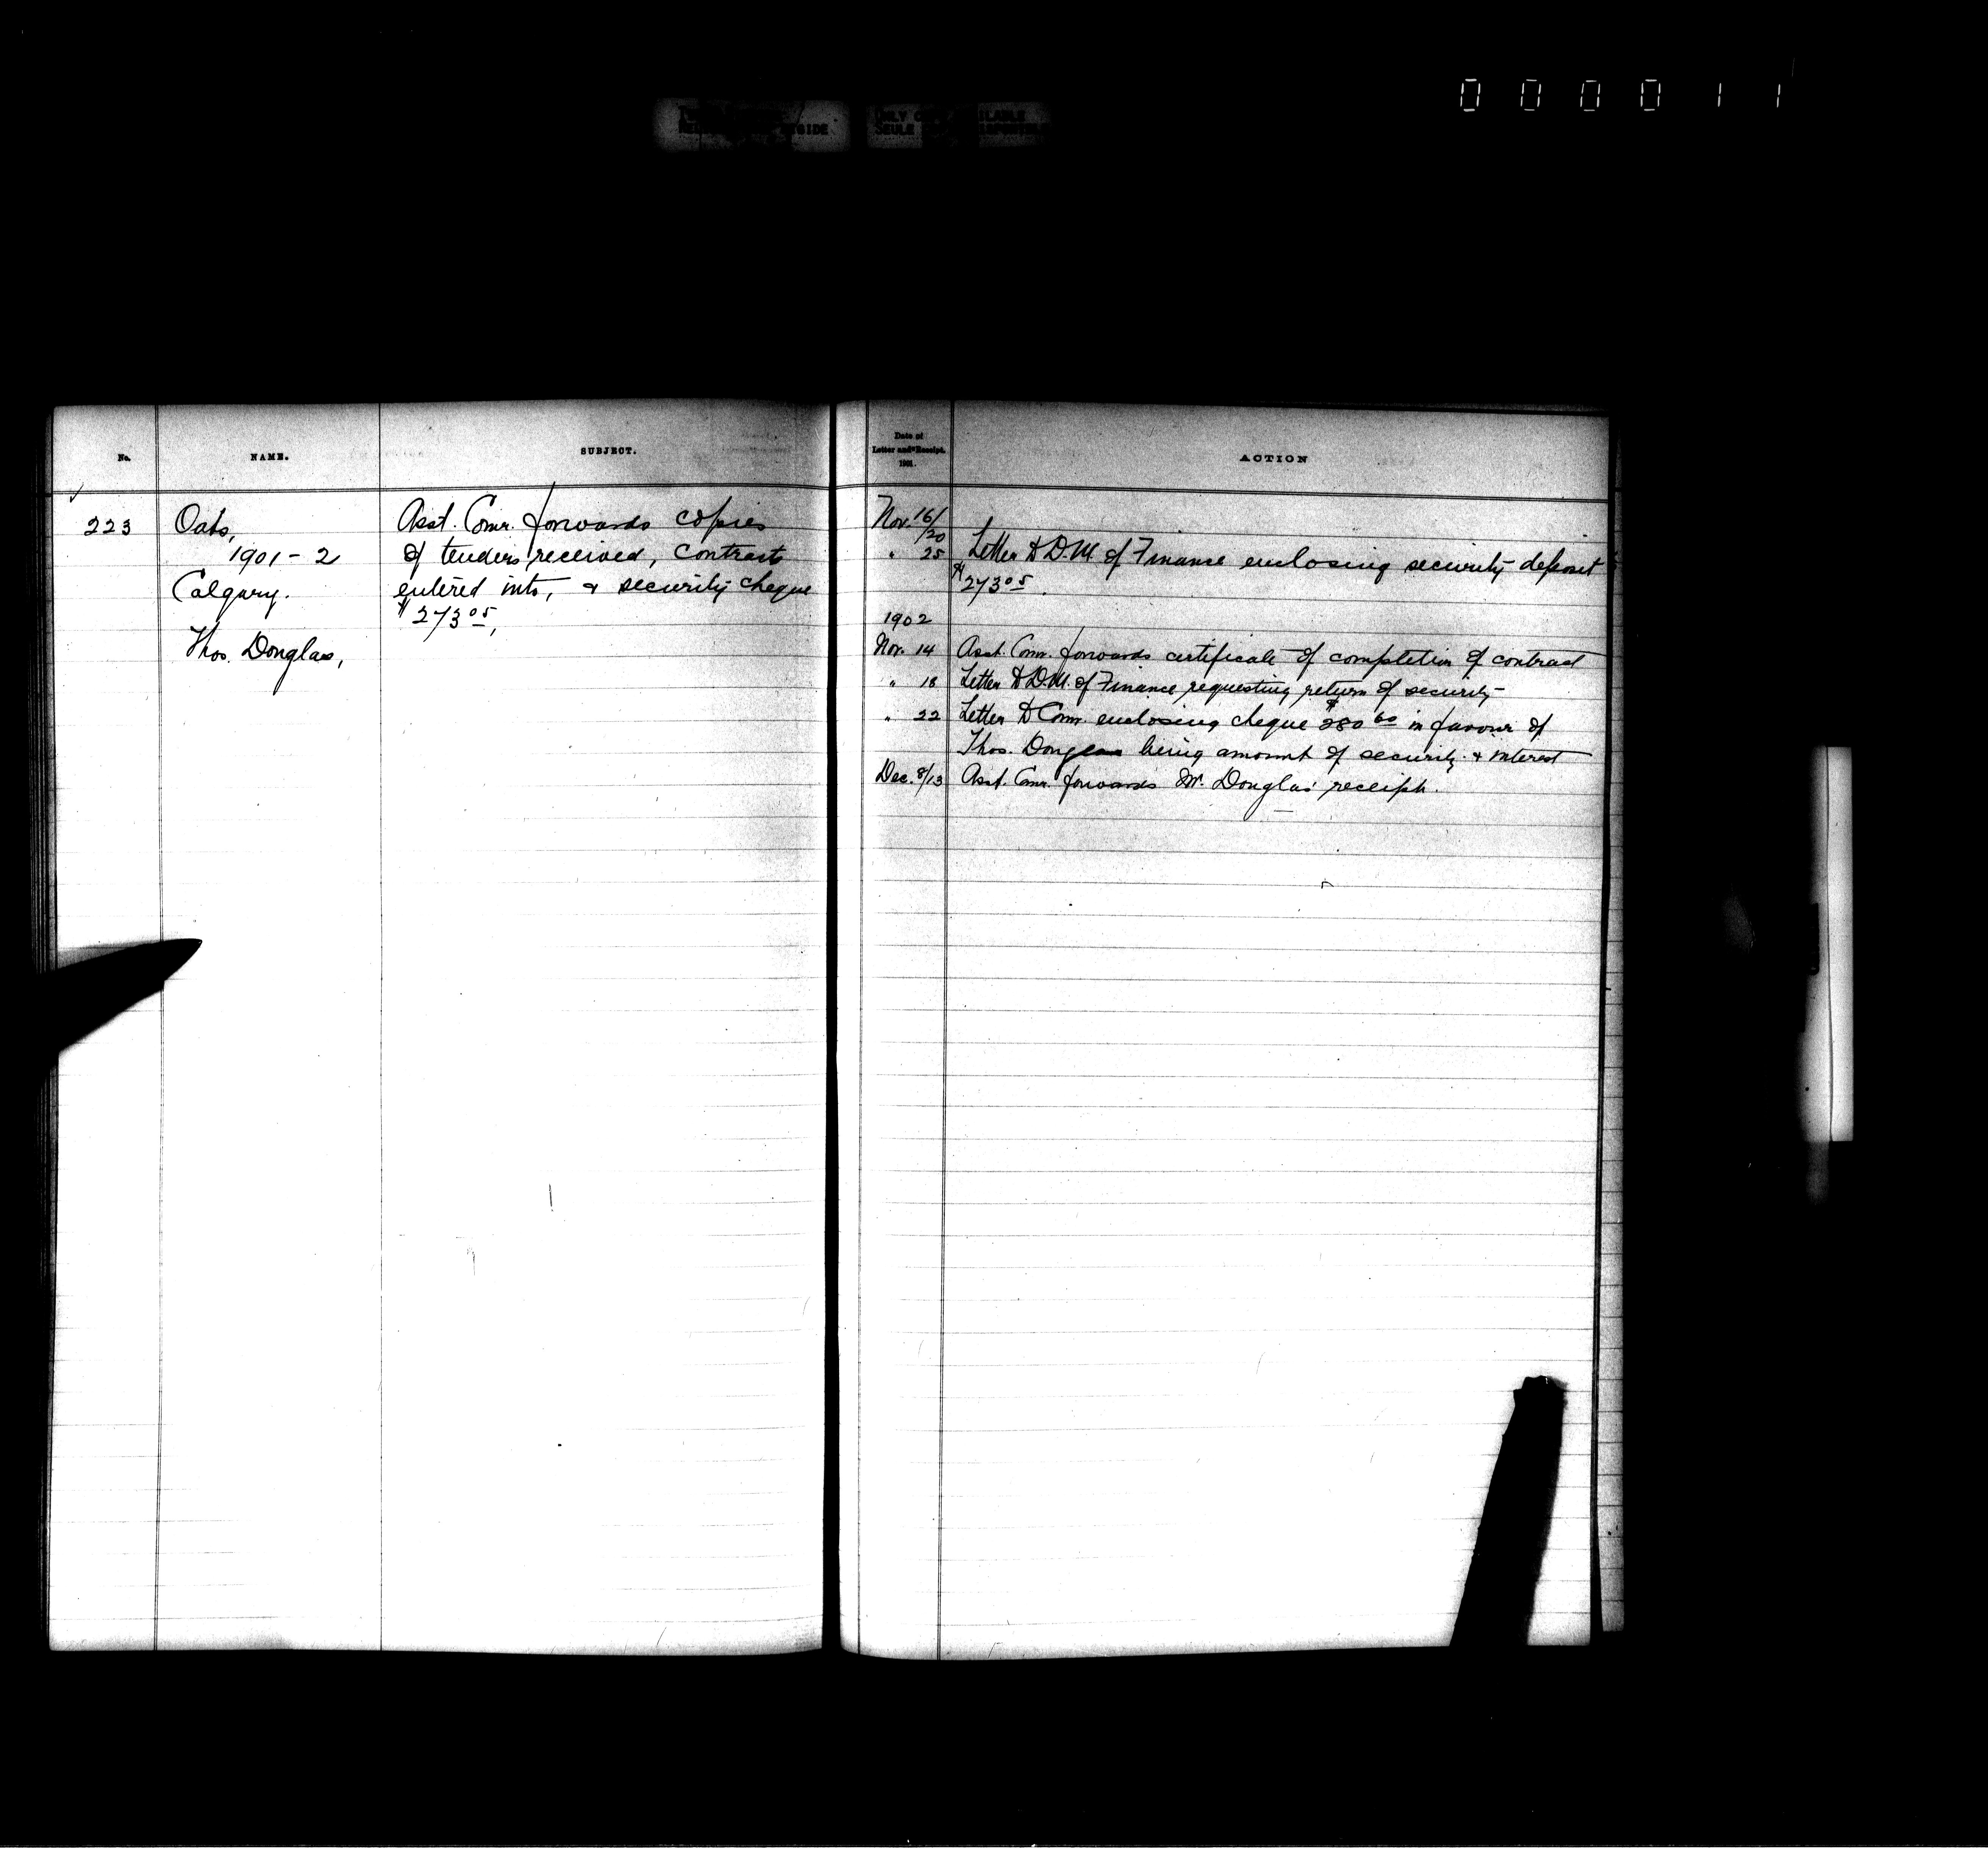 000011
ONLY COPY AVAILABLE
SEULE
No.
NAME.
SUBJECT.
223
Oats,
1901-2
Calgary.
Thos. Douglas,
Asst. Comr. forwards copies
of tenders received, contracts
entered into, & security cheque
$273.05,
Date of
Letter and Receipt.
1901.
ACTION
Nov. 16/20
" 25 Letter to D.M. of Finance enclosing security deposit
$273.05.
1902
Nov. 14 Asst. Comr. forwards certificate of completion of contract
" 18 Letter to D.M. of Finance requesting return of security
" 22 Letter to Comr. enclosing cheque $280.60 in favour of
Thos. Douglas being amount of security & interest
Dec. 8/13 Asst. Comr. forwards Mr. Douglas' receipt.